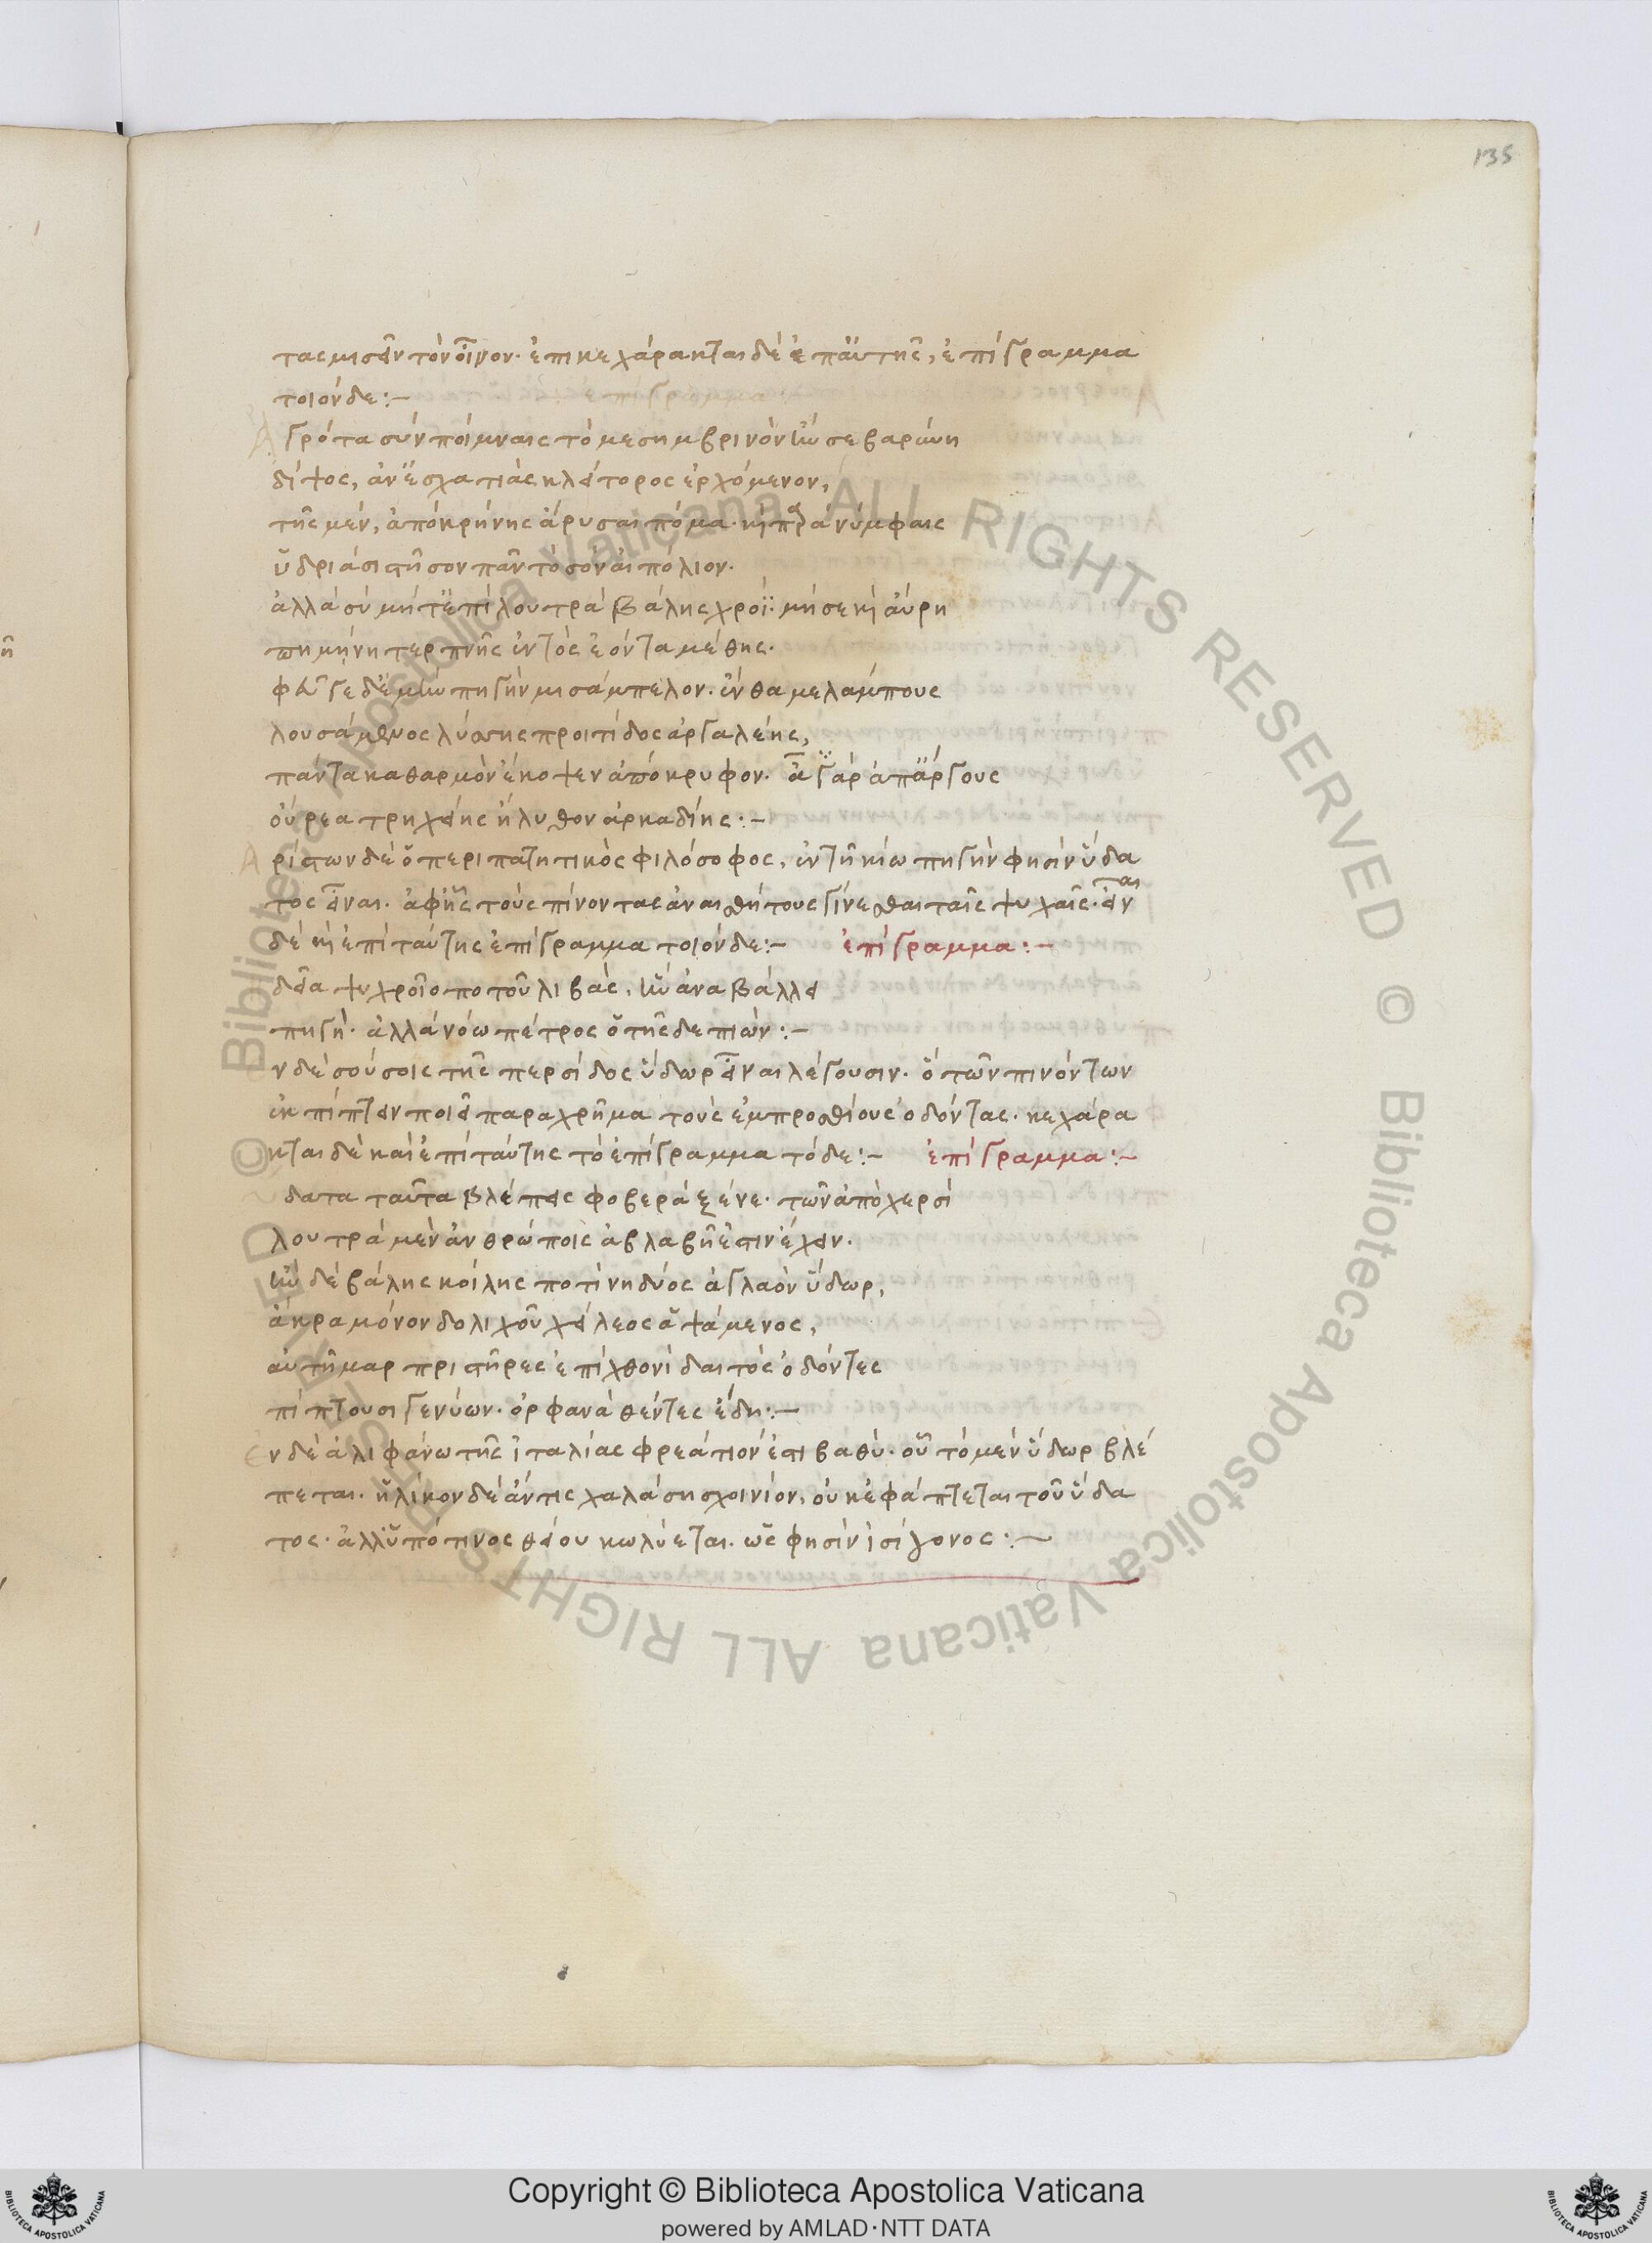 135
τας μισεῖν τὸν οἶνον· ἐπικεχάρακται δὲ ἐπ' αὐτῆς, ἐπίγραμμα
τοιόνδε:~
Ἀγρότα σὺν ποίμναις τὸ μεσημβρινὸν ἤν σε βαρύνη
δίψος, ἀν' ἐσχατιὰς κλείτορος ἐρχόμενον,
τῆς μὲν, ἀπὸ κρήνης ἄρυσαι πόμα· καὶ παρὰ νύμφαις
ὑδριάσι στῆσον πᾶν τὸ σὸν αἰπόλιον·
ἀλλὰ σὺ μήτ' ἐπὶ λουτρὰ βάλης χροΐ· μή σε καὶ αὔρη
πημήνη τερπνῆς ἐντὸς ἐόντα μέθης·
φεῦγε δ' ἐμὴν πηγὴν μισάμπελον· ἔνθα μελάμπους
λουσάμενος λύσσης προιτίδος ἀργαλέης,
πάντα καθαρμὸν ἔκοψεν ἀπόκρυφον· ἂ γὰρ ἀπ' ἄργους
οὔρεα τρηχείης ἤλυθον ἀρκαδίης:~
Ἀρίστων δὲ ὁ περιπατητικὸς φιλόσοφος, ἐν τῆ κίω πηγὴν φησὶν ὕδα
τος εἶναι· ἀφ' ἧς τοὺς πίνοντας ἀναισθήτους γίνεσθαι ταῖς ψυχαῖς· εἶν
ται
δὲ καὶ ἐπὶ ταύτης ἐπίγραμμα τοιόνδε:~ ἐπίγραμμα:~
δεῖα ψυχροῖο ποτοῦ λιβὰς, ἣν ἀναβάλλει
πηγὴ· ἀλλὰ νόω πέτρος ὁ τῆσδε πιών:~
ν δὲ σούσοις τῆς περσίδος ὕδωρ εἶναι λέγουσιν· ὃ τῶν πινόντων
ἐκπίπτειν ποιεῖ παραχρῆμα τοὺς ἐμπροσθίους ὀδόντας· κεχάρα
κται δὲ καὶ ἐπὶ ταύτης τὸ ἐπίγραμμα τόδε:~ ἐπίγραμμα:~
δατα ταῦτα βλέπεις φοβερὰ ξένε· τῶν ἀπὸ χερσὶ
λουτρὰ μὲν ἀνθρώποις ἀβλαβῆ ἐστιν ἔχειν·
ἢν δὲ βάλης κοίλης ποτὶ νηδύος ἀγλαὸν ὕδωρ,
ἄκρα μόνον δολιχοῦ χείλεος ἁψάμενος,
αὐτῆμαρ πριστῆρες ἐπὶ χθονὶ δαιτὸς ὀδόντες
πίπτουσι γενύων· ὀρφανὰ θέντες ἕδη:~
Ἐν δὲ ἀλιφάνω τῆς ἰταλίας φρεάτιόν ἐστι βαθύ· οὗ τὸ μὲν ὕδωρ βλέ
πεται· ἡλίκον δὲ ἄν τις χαλάση σχοινίον, οὐκ ἐφάπτεται τοῦ ὕδα
τος· ἀλλ' ὑπό τινος θείου κωλύεται· ὥς φησιν ἰσίγονος:~
Copyright © Biblioteca Apostolica Vaticana
powered by AMLAD·NTT DATA